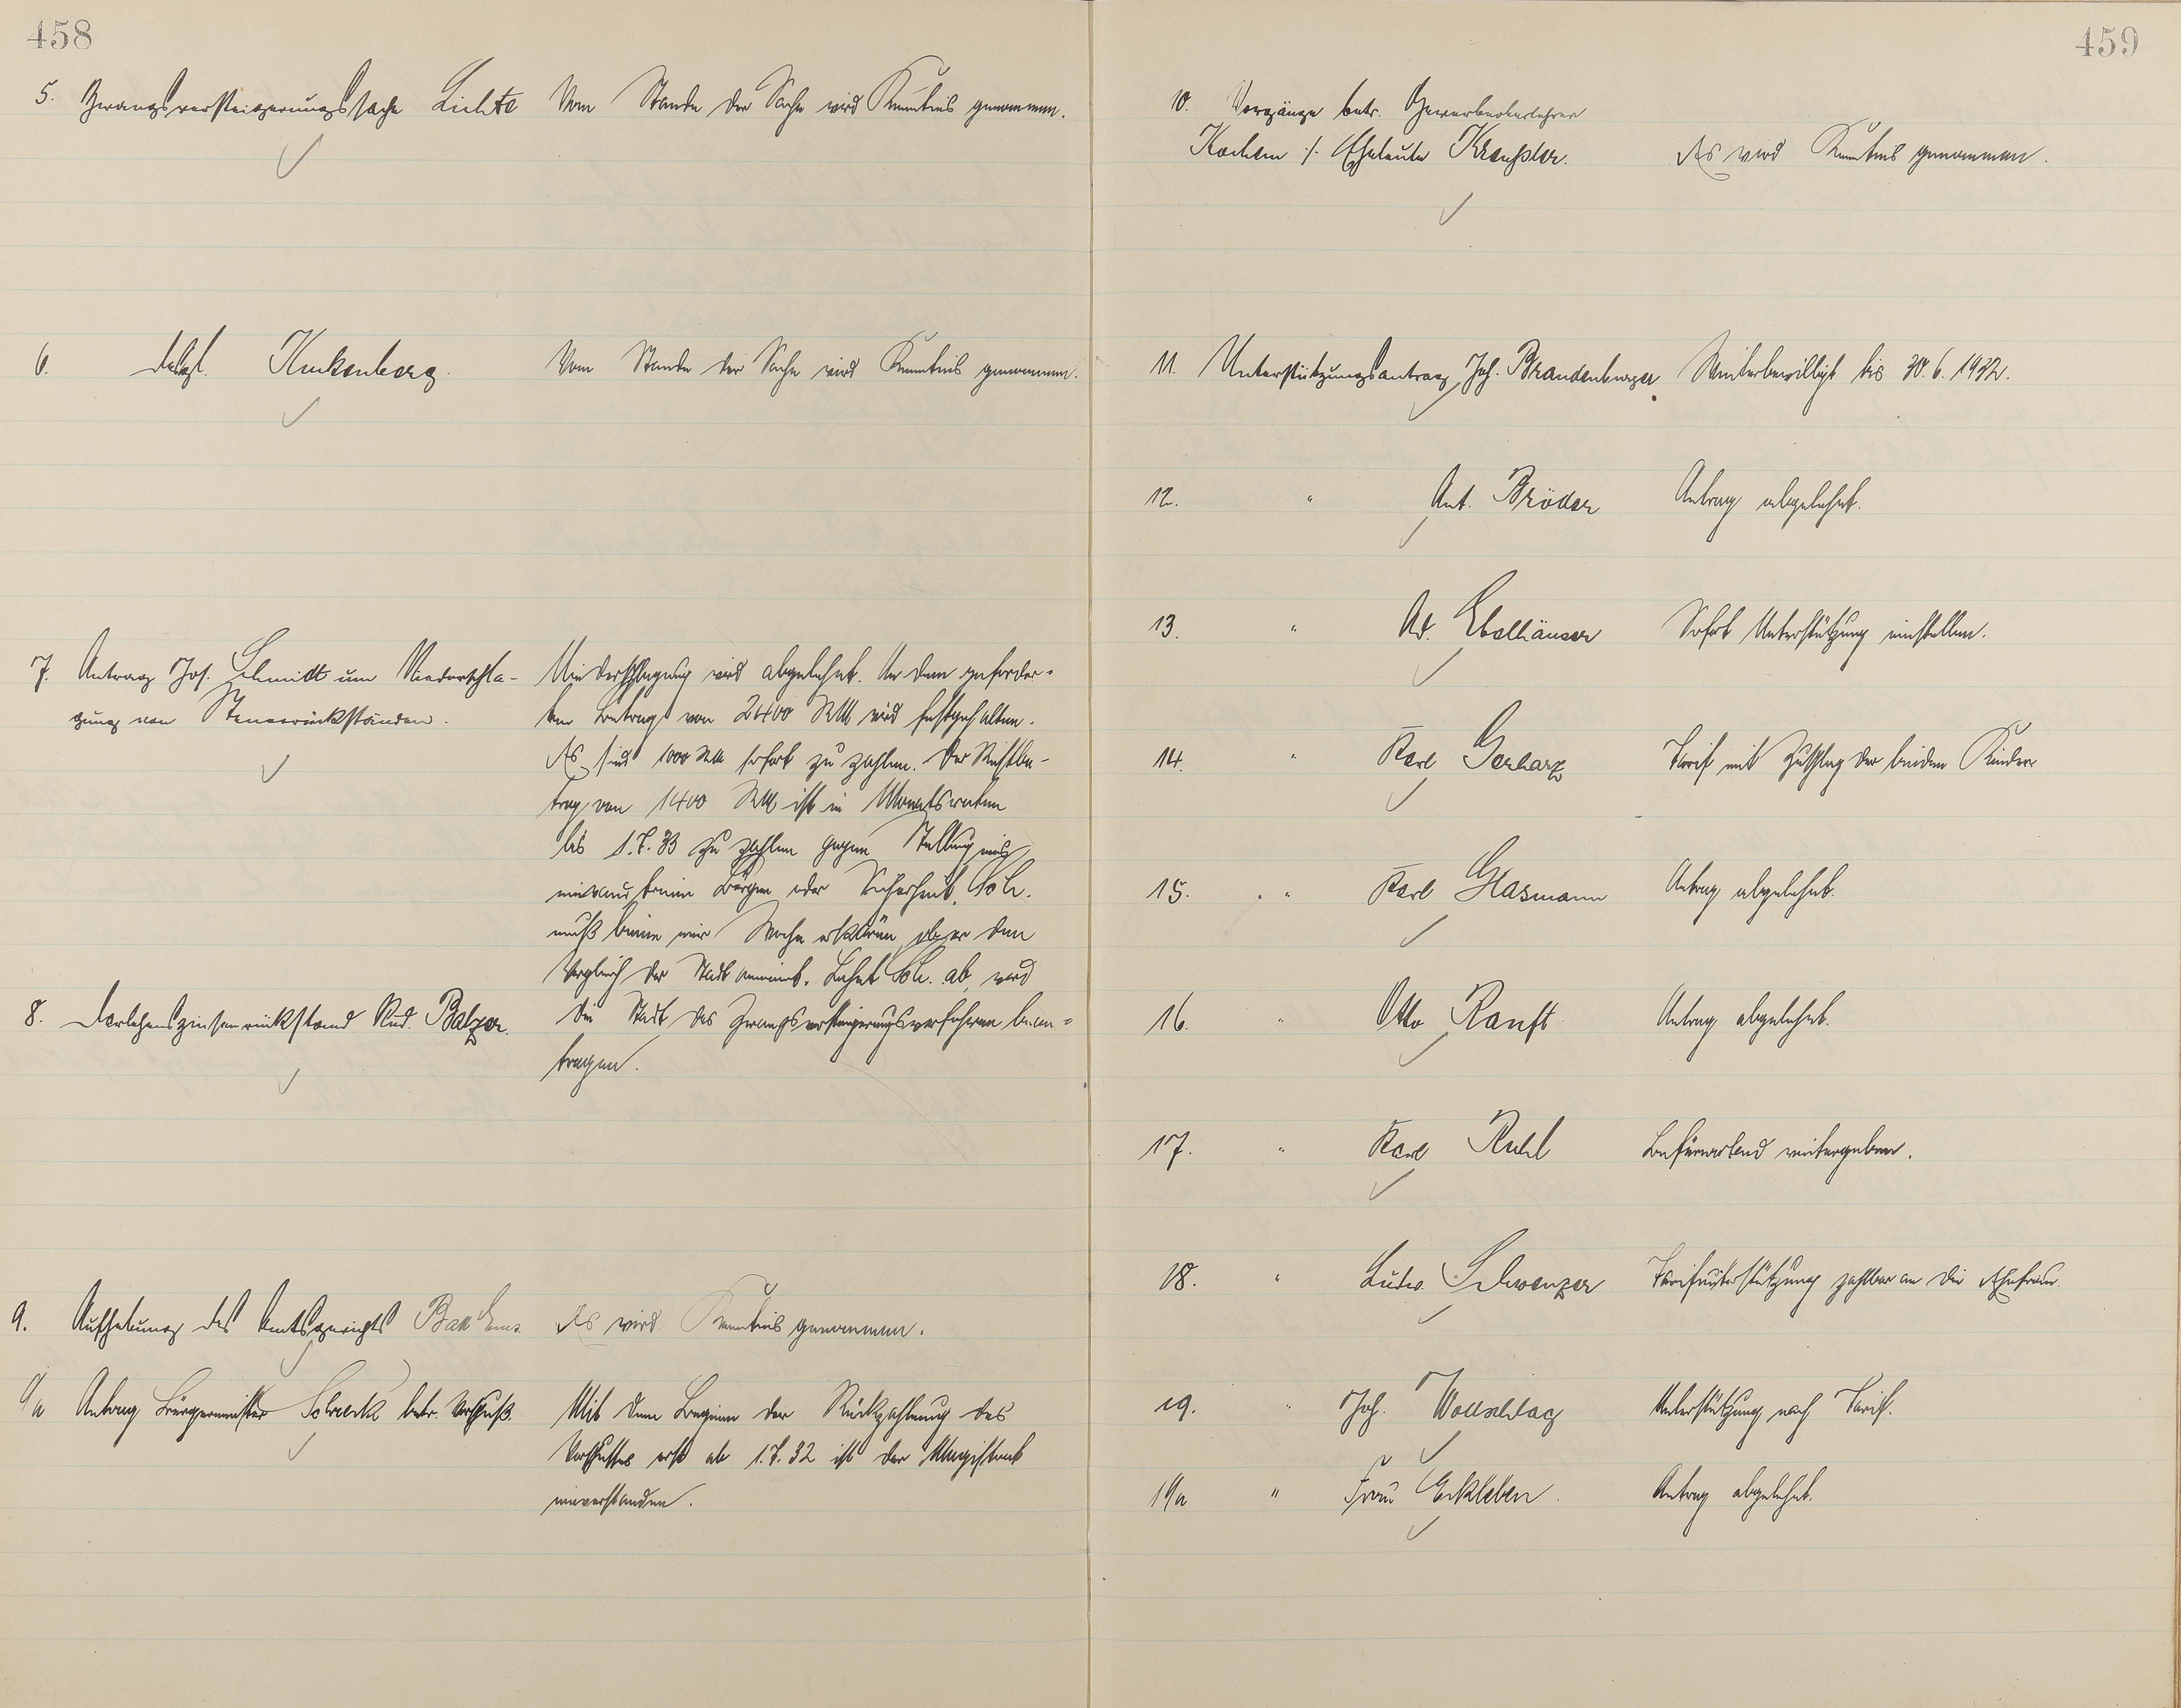 458
5. Zwangsversteigerungssache Lichte
Vom Stande der Sache wird Kenntnis genommen.
6. desgl. Kuckenberg.
Vom Stande der Sache wird Kenntnis genommen.
7. Antrag Jos. Schmidt um Niederschla-
gung von Steuerrückständen.
Niederschlagung wird abgelehnt. An dem geforder-
ten Betrage von 2400 RM wird festgehalten.
Es sind 1000 RM sofort zu zahlen. Der Restbe-
trag von 1400 RM ist in Monatsraten
bis 1.7.33 zu zahlen gegen Stellung eines
einwandfreien Bürgen oder Sicherheit. Sch.
muß binnen einer Woche erklären, ob er den
Vergleich der Stadt annimmt. Lehnt Sch. ab, wird
die Stadt das Zwangsversteigerungsverfahren bean-
tragen.
8. Darlehenszinsenrückstand Rud. Balzer.
9. Aufhebung des Amtsgerichts Bad Ems.
Es wird Kenntnis genommen.
9/a Antrag Bürgermeister Schreck betr. Vorschuß.
Mit dem Beginn der Rückzahlung des
Vorschusses erst ab 1.7.32 ist der Magistrat
einverstanden.
459
10. Vorgänge betr. Gewerbeoberlehrer
Kochem ./. Eheleute Krensler.
Es wird Kenntnis genommen.
11. Unterstützungsantrag Joh. Brandenburger
Weiterbewilligt bis 30.6.1932.
12. " Ant. Bröder
Antrag abgelehnt.
13. " Ad. Ebelhäuser
Sofort Unterstützung einstellen.
14. " Karl Gerharz
Tarif mit Zuschlag der beiden Kinder
15. " Karl Glasmann
Antrag abgelehnt.
16. " Otto Ranft
Antrag abgelehnt.
17. " Karl Ruhl
Befürwortend weitergeben.
18. " Ludw. Schwenzer
Tarifunterstützung zahlbar an die Ehefrau.
19. " Joh. Wollschlag
Unterstützung nach Tarif.
19/a " Frau Erkleben.
Antrag abgelehnt.